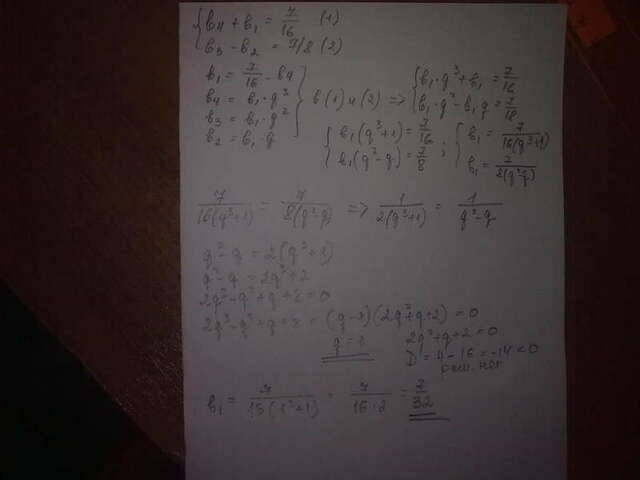 { b₄ + b₁ = 7/16 (1)
b₃ - b₂ = 7/8 (2)
b₁ = 7/16 - b₄
b₄ = b₁·q³
b₃ = b₁·q²
b₂ = b₁·q
} в (1) и (2) => { b₁·q³ + b₁ = 7/16
b₁·q² - b₁q = 7/18
{ b₁(q³+1) = 7/16
b₁(q²-q) = 7/8
; { b₁ = 7/16(q³+1)
b₁ = 7/8(q²-q)
7/16(q³+1) = 7/8(q²-q) => 1/2(q³+1) = 1/q²-q
q²-q = 2(q³+1)
q²-q = 2q³+2
2q³-q²+q+2=0
2q³-q²+q+2 = (q-1)(2q²+q+2) = 0
q = 1
2q²+q+2=0
D = 4-16 = -14 < 0
реш. нет
b₁ = 7/15(1³+1) = 7/16·2 = 7/32